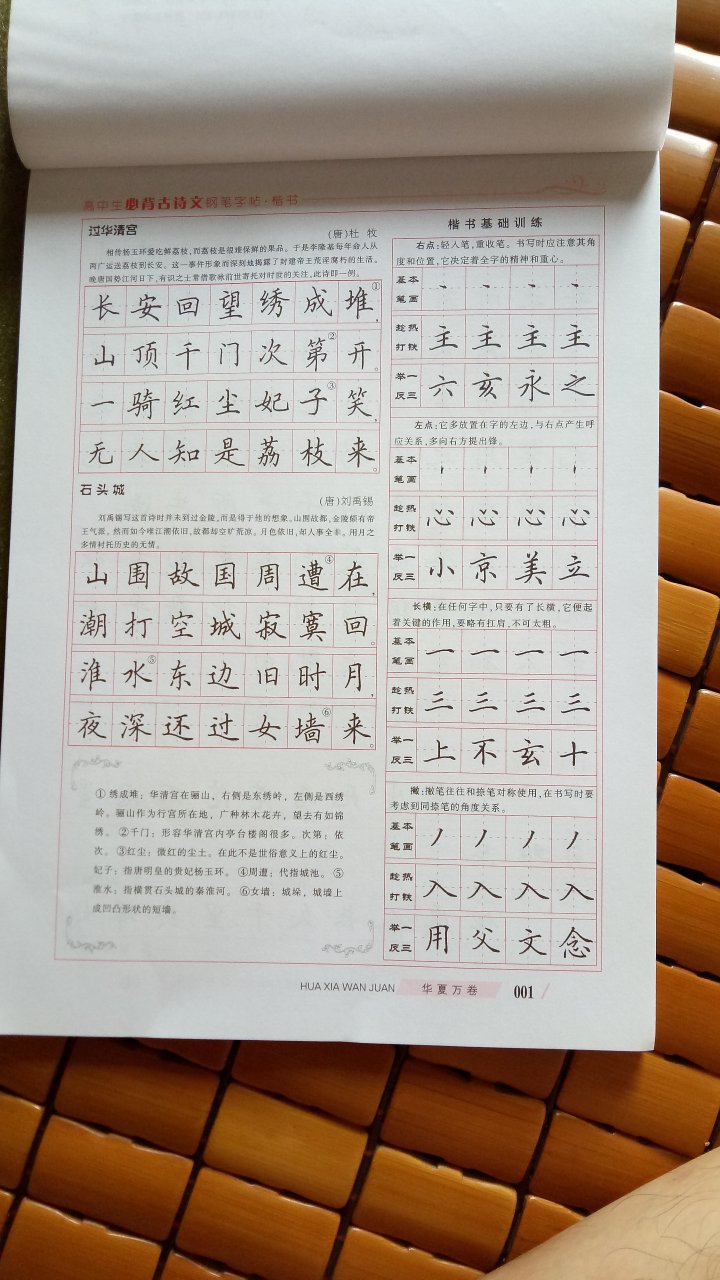 高中生必背古诗文钢笔字帖·楷书
过华清宫
(唐)杜 牧
相传杨玉环爱吃鲜荔枝,而荔枝是很难保鲜的果品。于是李隆基每年命人从
两广运送荔枝到长安。这一事件形象而深刻地揭露了封建帝王荒淫腐朽的生活。
晚唐国势江河日下,有识之士常借歌咏前世寄托对时世的关注,此诗即一例。
长安回望绣成堆①,
山顶千门次第②开。
一骑红尘妃子③笑,
无人知是荔枝来。
石头城
(唐)刘禹锡
刘禹锡写这首诗时并未到过金陵,而是得于他的想象。山围故都,金陵颇有帝
王气派。然而如今唯江潮依旧,故都却空旷荒凉。月色依旧,却人事全非。用月之
多情衬托历史的无情。
山围故国周遭④在,
潮打空城寂寞回。
淮水⑤东边旧时月,
夜深还过女墙⑥来。
①绣成堆:华清宫在骊山,右侧是东绣岭,左侧是西绣
岭。骊山作为行宫所在地,广种林木花卉,望去有如锦
绣。②千门:形容华清宫内亭台楼阁很多。次第:依
次。③红尘:微红的尘土。在此不是世俗意义上的红尘。
妃子:指唐明皇的贵妃杨玉环。④周遭:代指城池。⑤
淮水:指横贯石头城的秦淮河。⑥女墙:城垛,城墙上
成凹凸形状的短墙。
楷书基础训练
右点:轻入笔,重收笔。书写时应注意其角
度和位置,它决定着全字的精神和重心。
基本
笔画
趁热
打铁
主主主主
举一
反三
六亥永之
左点:它多放置在字的左边,与右点产生呼
应关系,多向右方提出锋。
基本
笔画
趁热
打铁
心心心心
举一
反三
小京美立
长横:在任何字中,只要有了长横,它便起
着关键的作用,要略有扛肩,不可太粗。
基本
笔画
一一一一
趁热
打铁
三三三三
举一
反三
上不玄十
撇:撇笔往往和捺笔对称使用,在书写时要
考虑到同捺笔的角度关系。
基本
笔画
丿丿丿丿
趁热
打铁
入入入入
举一
反三
用父文念
HUA XIA WAN JUAN 华夏万卷 001